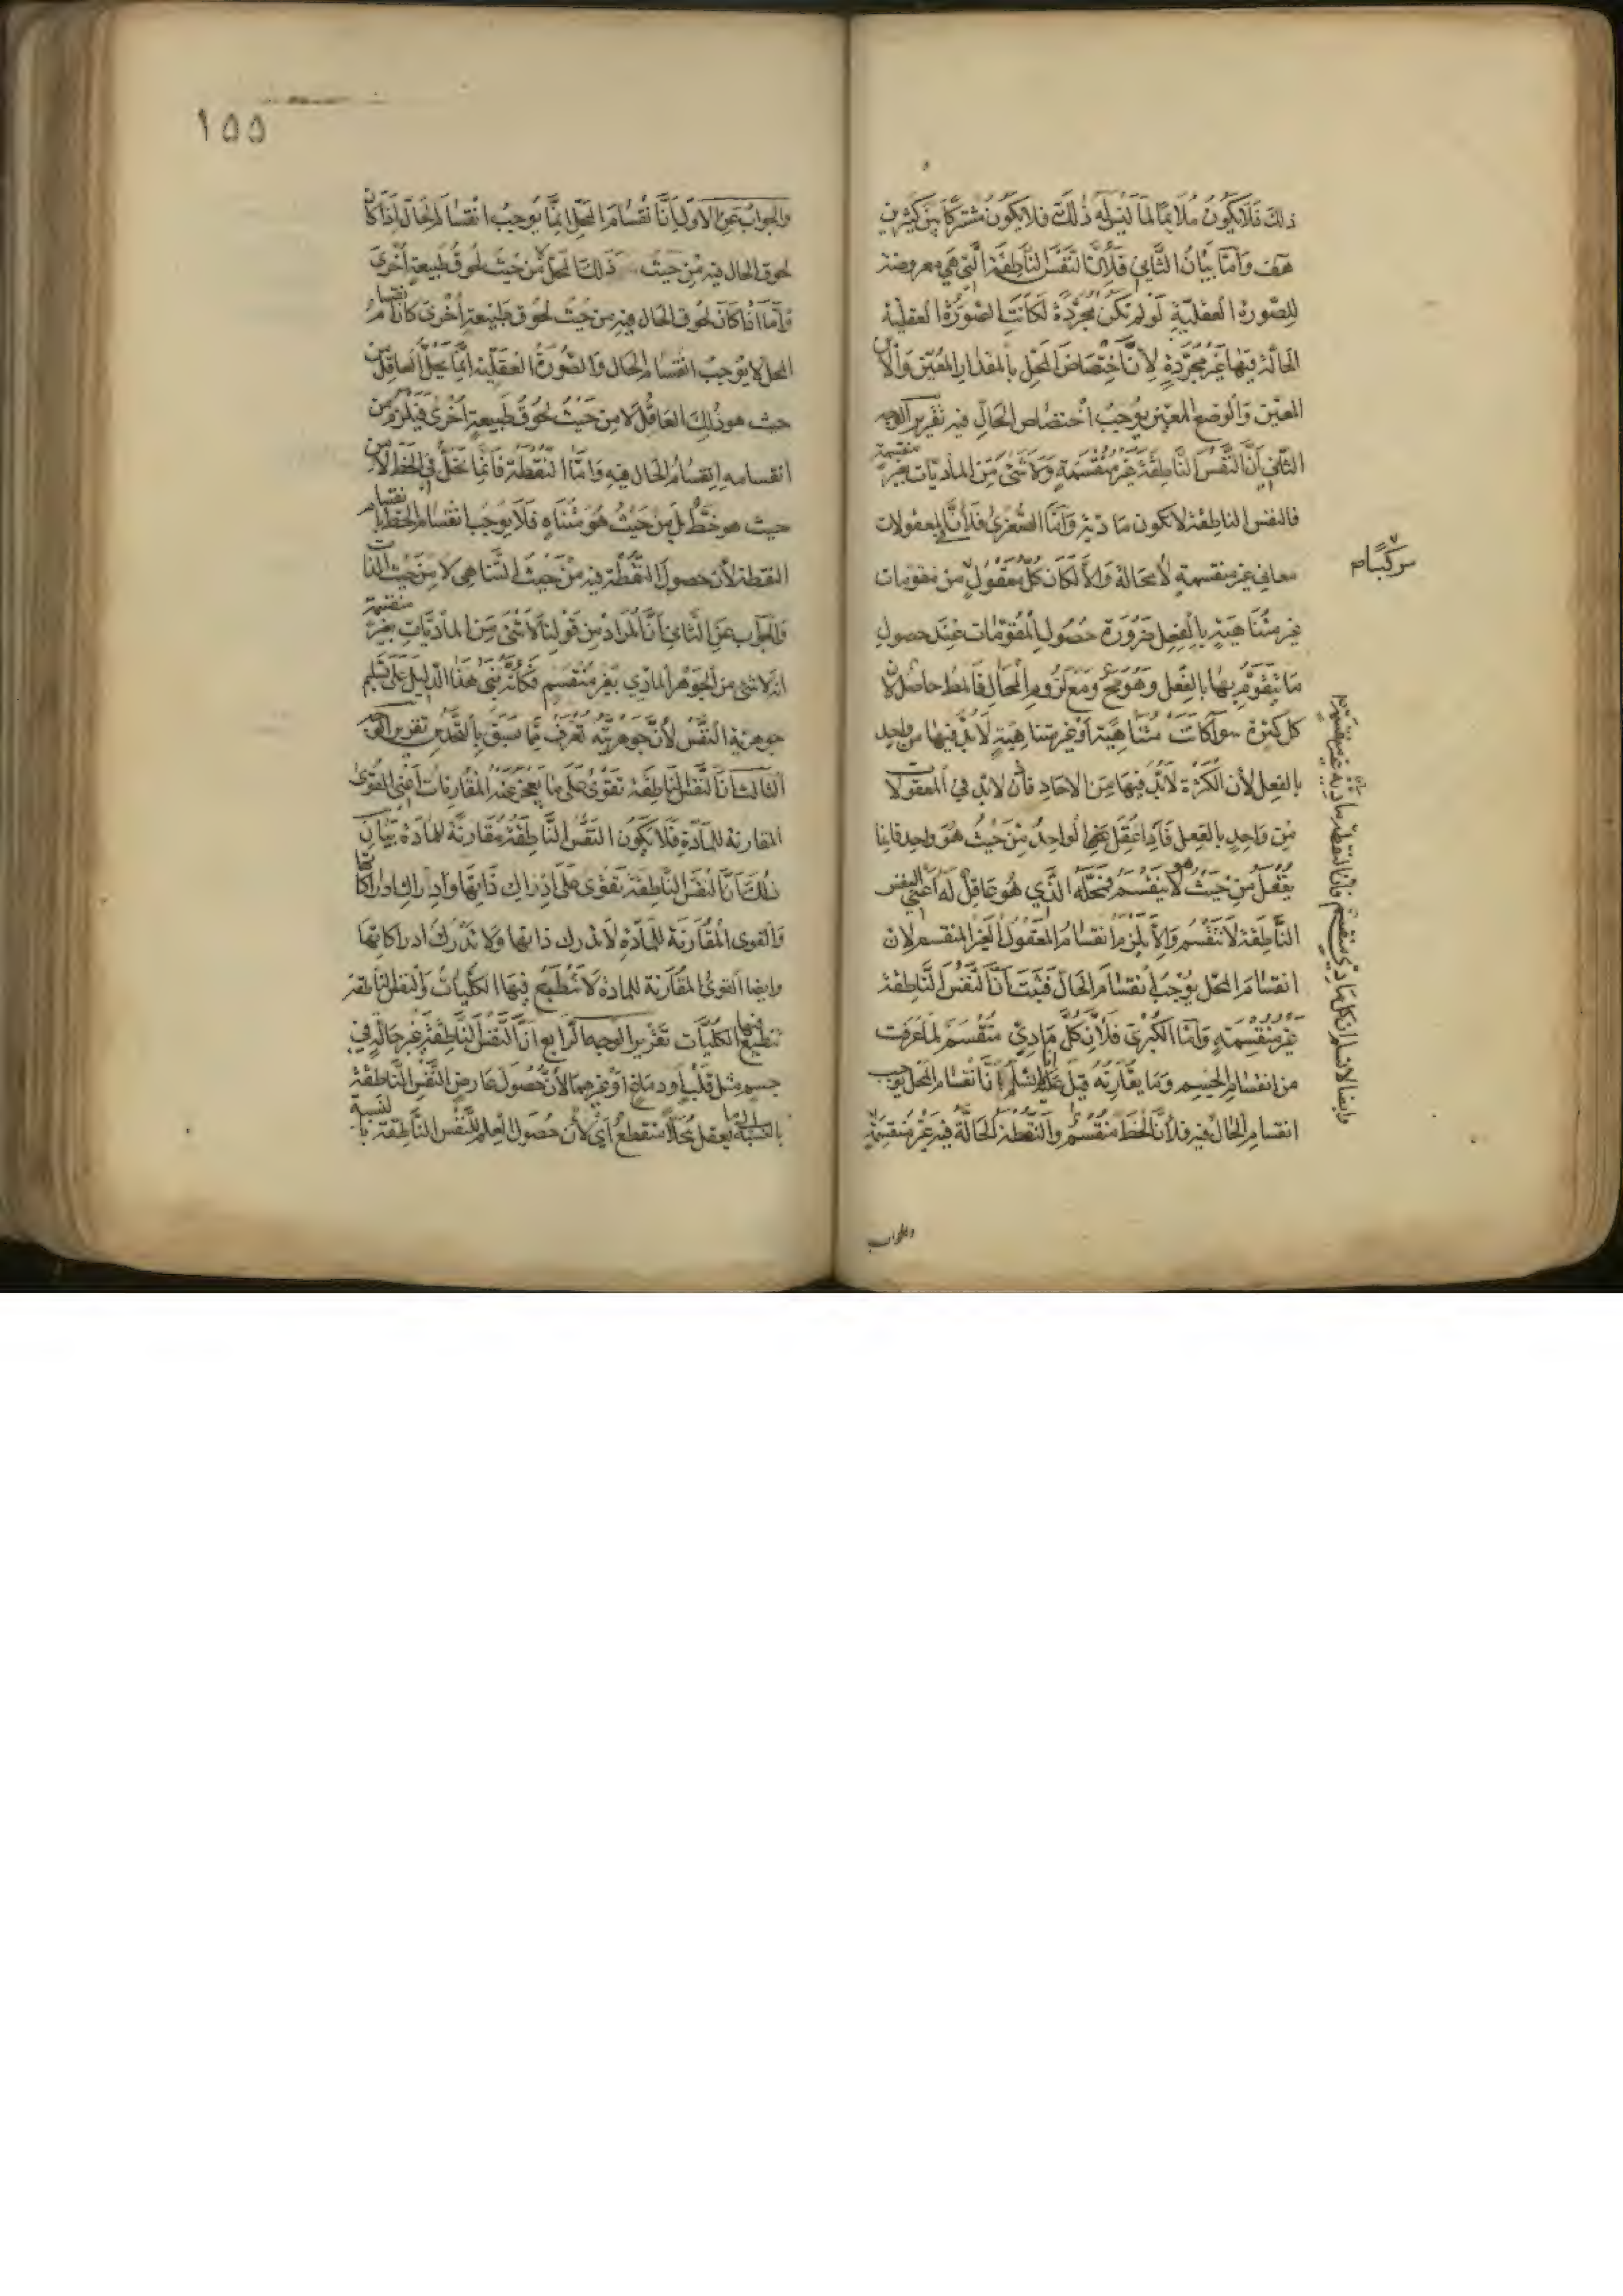 ذلك فلا يكون ملائما لما ليس له ذلك فلا يكون مشتركا بين كثيرين
هف واما بيان الثاني فلان النفس الناطقة التي هي معروضة
للصورة العقلية لو لم تكن مجردة لكانت الصورة العقلية
الحالة فيها غير مجردة لان اختصاص المحل بالمقدار المعين والاين
المعين والوضع المعين يوجب اختصاص الحال فيه تقرير الوجه
الثاني ان النفس الناطقة غير منقسمة ولا شئ من الماديات بغير منقسمة
فالنفس الناطقة لا تكون مادية واما الصغرى فلان المعقولات
معاني غير منقسمة لا محالة والا لكان كل معقول من مقومات
غير متناهية بالفعل ضرورة حصول المقومات عند حصول
ما يتقوم بها بالفعل وهو مح ومع لزوم المحال فالمط حاصل لان
كل كثرة سوآ كانت متناهية او غير متناهية لابد فيها من واحد
بالفعل لان الكثرة لابد فيها من الاحاد فاذن لابد في المعقولات
من واحد بالفعل فاذا عقل الواحد من حيث هو واحد فانما
يعقل من حيث هو لا ينقسم فمحله الذي هو عاقل له اعني النفس
الناطقة لا تنقسم والا يلزم انقسام المعقول الغير المنقسم لان
انقسام المحل يوجب انقسام الحال فثبت ان النفس الناطقة
غير منقسمة واما الكبرى فلان كل مادي منقسم لما عرفت
من انقسام الجسم وما يقارنه قيل لا نسلم ان انقسام المحل يوجب
انقسام الحال فيه فلان الخط منقسم والنقطة الحالة فيه غير منقسمة
مركبا م
وايضا لا نسلم ان كل مادي منقسم فان النقطة مادية غير منقسمة
والجواب
١٥٥
والجواب عن الاول ان انقسام المحل انما يوجب انقسام الحال اذا كان
لحوق الحال فيه من حيث ذلك المحل لا من حيث لحوق طبيعة اخرى
واما اذا كان لحوق الحال فيه من حيث لحوق طبيعة اخرى كان انقسام
المحل لا يوجب انقسام الحال والصورة العقلية انما تحل العاقل من
حيث هو ذلك العاقل لا من حيث لحوق طبيعة اخرى فيلزم من
انقسامه انقسام الحال فيه واما النقطة فانما تحل في الخط لا من
حيث هو خط بل من حيث هو متناه فلا يوجب انقسام الخط انقسام
النقطة لان حصول النقطة فيه من حيث التناهي لا من حيث الذات
والجواب عن الثاني ان المراد من قولنا لا شئ من الماديات بغير منقسمة
انه لا شئ من الجوهر المادي بغير منقسم فكانه بنى هذا الدليل على تسليم
جوهرية النفس لان جوهريته تعرف مما سبق بالتحدس تقرير الوجه
الثالث ان النفس الناطقة تقوى على ما يعجز عنه المقارنات اعني القوى
المقارنة للمادة فلا يكون النفس الناطقة مقارنة للمادة بيان
ذلك ان النفس الناطقة تقوى على ادراك ذاتها وادراك ادراكاتها
والقوى المقارنة للمادة لا تدرك ذاتها ولا تدرك ادراكاتها
وايضا القوى المقارنة للمادة لا تنطبع فيها الكليات والنفس الناطقة
تنطبع فيها الكليات تقرير الوجه الرابع ان النفس الناطقة غير حالة في
جسم مثل قلب او دماغ او غيرهما لان حصول عارض النفس الناطقة
بالنسبة الى ما يعقل محلا منقطع اي لان حصول العلم للنفس الناطقة بالنسبة